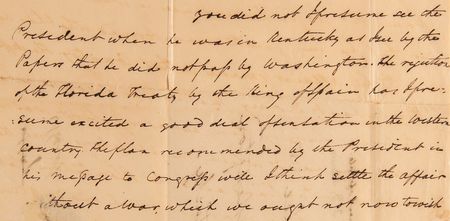 you did not I presume see the
President when he was in Kentucky as I see by the
Papers that he did not pass by Washington. The rejection
of the Florida Treaty by the King of Spain has I pre-
:sume excited a good deal of sensation in the Western
country The plan recommended by the President in
his message to Congress will I think settle the affair
without a war, which we ought not now to wish